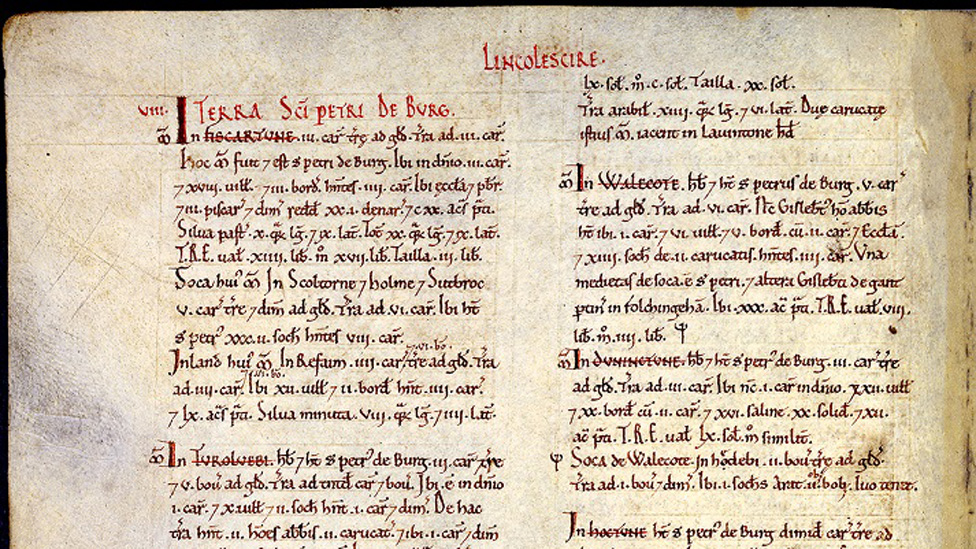 LINCOLESCIRE.
VIII. TERRA SCI PETRI DE BURG.
In FISCARTUNE .iii. car tre ad gld. Tra ad .iii. car.
Hoc m fuit 7 est s petri de Burg. Ibi in dnio .iii. car.
7 xxviii. uill. 7 iii. bord. hntes .iiii. car. Ibi eccla 7 pbr.
7 iii. piscar 7 dim redd xx.i. denar. 7 c xx. acs pti.
Silua past .x. qr lg. 7 ix. lat. Tot xx. qr lg. 7 ix. lat.
T.R.E. ual .xiiii. lib. m xvii. lib. Tailla .iii. lib.
Soca hui m In Scoltorne 7 holme 7 Sutbroc
v. car tre 7 dim ad gld. Tra ad .vi. car. Ibi ht
s petr xxx.ii. soch hntes viii. car.
7 .vi. bo.
Inland hui m In Refaim .iiii. car tre ad gld. Tra
7 .vi. bo.
ad .iiii. car. Ibi xii. uill 7 ii. bord hnt .iiii. car.
7 lx. acs pti. Silua minuta. viii. qr lg. 7 iiii. lat.
m In TUROLUEBI. hb 7 ht s petr de Burg. iii. car tre
7 v. bou ad gld. Tra ad totid car 7 bou. Ibi e in dnio
.i. car. 7 x. uill 7 ii. soch hnt .i. car 7 dim. De hac
tra hnt .ii. hoes abbis .ii. carucat. 7 ibi .i. car 7 dim
lx. sol. m .c. sol. Tailla .xx. sol.
Tra arabil .xiii. qr lg. 7 vi. lat. Due carucate
istius m iacent in Lauintone hd
m In WALECOTE. hb 7 ht s petrus de Burg .v. car
tre ad gld. Tra ad .vi. car. Nc Gislebt ho abbis
ht ibi .i. car. 7 vi. uill. 7 v. bord cu .ii. car. 7 Eccla.
7 xiii. soch de .ii. carucatis. hntes .iiii. car. Una
medietas de soca e s petri. 7 altera Gislebti de gant
ptin in folchingeha. Ibi .xxx. ac pti. T.R.E. ual viii.
lib. m .iiii. lib.
m In DUNINCTUNE. hb 7 ht s petr de Burg .iii. car tre
ad gld. Tra ad .ii. car. Ibi nc .i. car in dnio. 7 xxii. uill
7 xx. bord cu .ii. car. 7 xvi. saline .xx. solid. 7 xii.
ac pti. T.R.E. ual lx. sol. m similit.
Soca de Walecote. In hodebi .ii. bou tre ad gld.
Tra ad .i. bou 7 dim. Ibi .i. sochs arat .ii. bob. Iuo tenet.
In HOCTUNE ht s petr de Burg dimid car tre ad